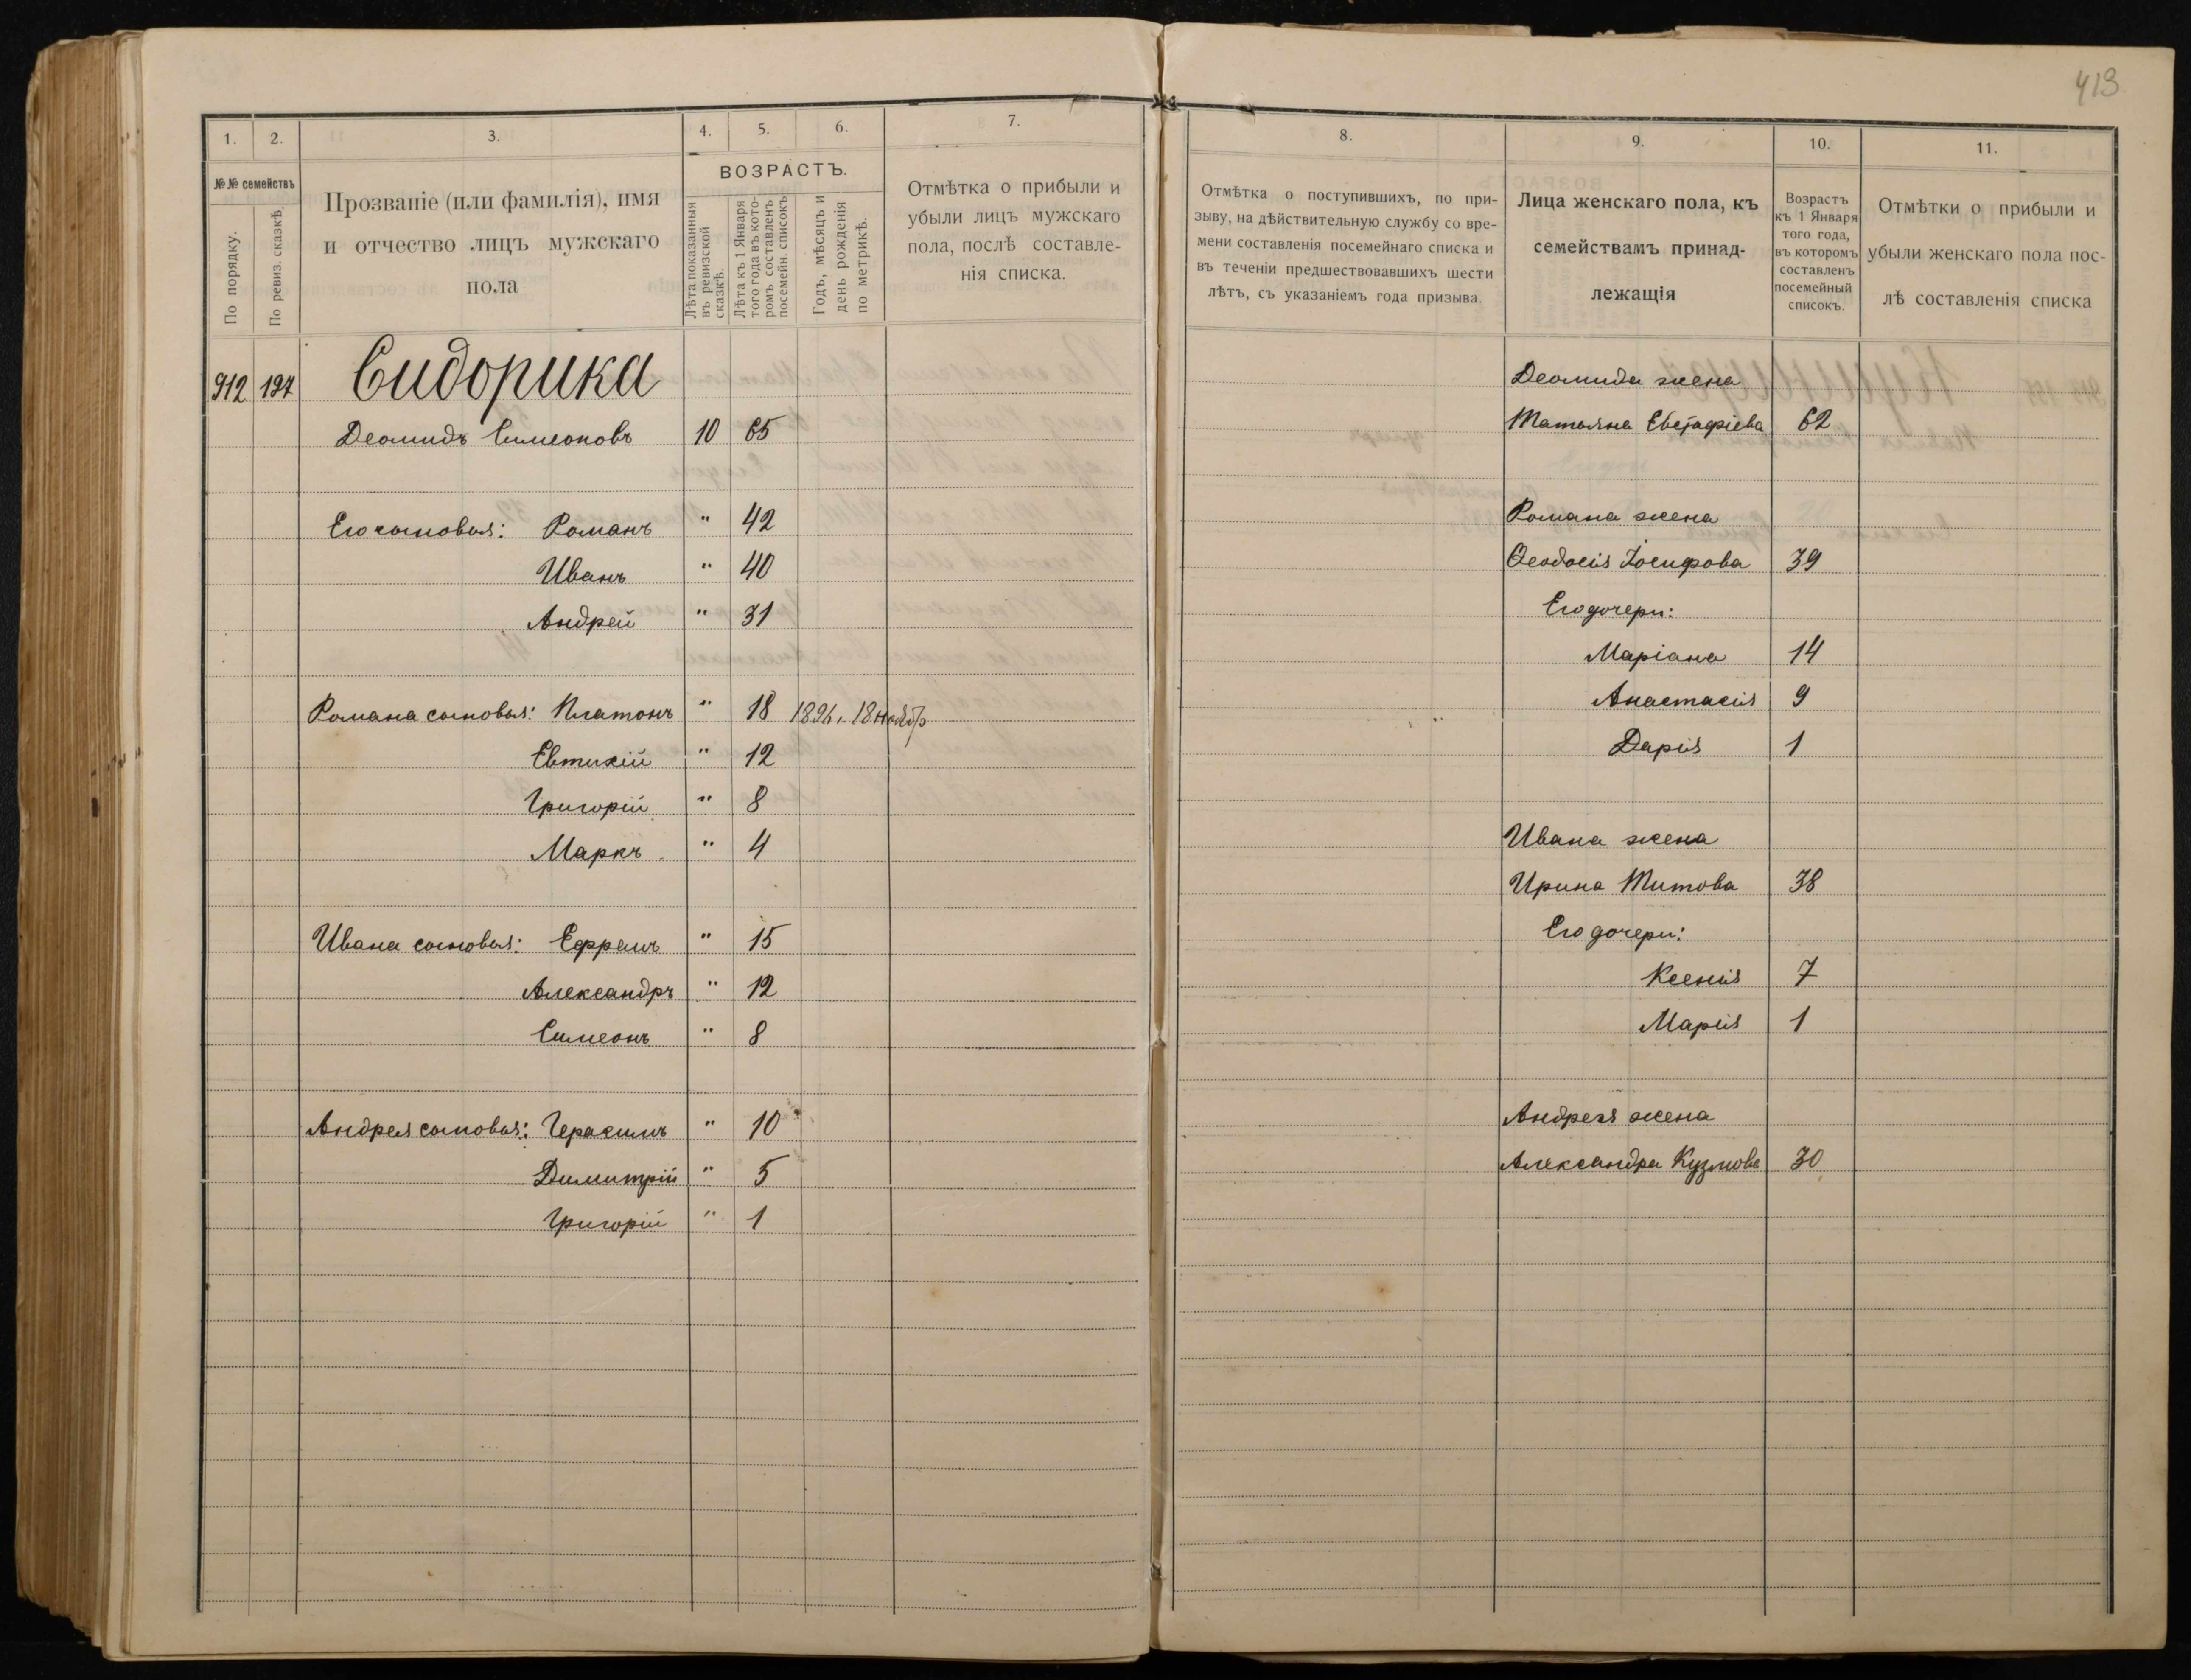 413
1. 2. 3. 4. 5. 6. 7.
№№ семействъ
По порядку.
По ревиз. сказкѣ.
Прозваніе (или фамилія), имя
и отчество лицъ мужскаго
пола
ВОЗРАСТЪ.
Лѣта показанныя
въ ревизской
сказкѣ.
Лѣта къ 1 Января
того года въ кото-
ромъ составленъ
посемейн. списокъ
Годъ, мѣсяцъ и
день рожденія
по метрикѣ.
Отмѣтка о прибыли и
убыли лицъ мужскаго
пола, послѣ составле-
нія списка.
912 197 Сидорика
Деомидъ Симеоновъ 10 65
Его сыновья: Романъ " 42
Иванъ " 40
Андрей " 31
Романа сыновья: Платонъ " 18 1896 г. 18 ноябр
Евтихій " 12
Григорій " 8
Маркъ " 4
Ивана сыновья: Ефремъ " 15
Александръ " 12
Симеонъ " 8
Андрея сыновья: Герасимъ " 10
Димитрій " 5
Григорій " 1
8. 9. 10. 11.
Отмѣтка о поступившихъ, по при-
зыву, на дѣйствительную службу со вре-
мени составленія посемейнаго списка и
въ теченіи предшествовавшихъ шести
лѣтъ, съ указаніемъ года призыва.
Лица женскаго пола, къ
семействамъ принад-
лежащія
Возрастъ
къ 1 Января
того года,
въ которомъ
составленъ
посемейный
списокъ.
Отмѣтки о прибыли и
убыли женскаго пола пос-
лѣ составленія списка
Деомида жена
Татьяна Евстафіева 62
Романа жена
Ѳеодосія Іосифова 39
Его дочери:
Маріана 14
Анастасія 9
Дарія 1
Ивана жена
Ирина Титова 38
Его дочери:
Ксенія 7
Марія 1
Андрея жена
Александра Кузмова 30